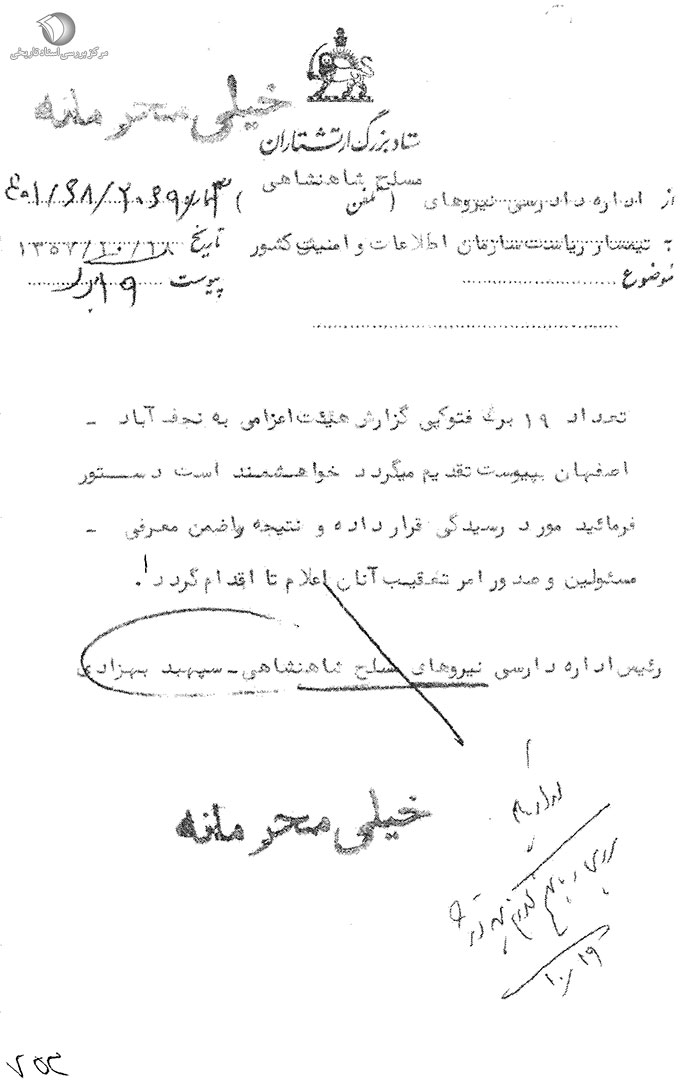 مرکز بررسی اسناد تاریخی
خیلی محرمانه
ستاد بزرگ ارتشتاران
از اداره دادرسی نیروهای مسلح شاهنشاهی (تلفن )
به تیمسار ریاست سازمان اطلاعات و امنیت کشور تاریخ ۱۳۵۷/۱۰/۱۸
موضوع پیوست ۱۹ برگ
تعداد ۱۹ برگ فتوکپی گزارش هیئت اعزامی به نجف آباد -
اصفهان بپیوست تقدیم میگردد خواهشمند است دستور
فرمائید مورد رسیدگی قرار داده و نتیجه راضمن معرفی -
مسئولین و صدور امر تعقیب آنان اعلام تا اقدام گردد.
رئیس اداره دارسی نیروهای مسلح شاهنشاهی - سپهبد بهزادی
خیلی محرمانه
۱۰/۱۹